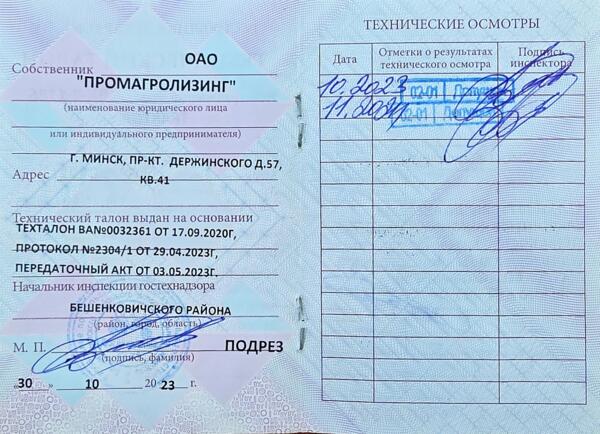 ОАО
Собственник
"ПРОМАГРОЛИЗИНГ"
(наименование юридического лица
или индивидуального предпринимателя)
Г. МИНСК, ПР-КТ. ДЕРЖИНСКОГО Д.57,
Адрес
КВ.41
Технический талон выдан на основании
ТЕХТАЛОН ВАN№0032361 ОТ 17.09.2020Г,
ПРОТОКОЛ №2304/1 ОТ 29.04.2023Г,
ПЕРЕДАТОЧНЫЙ АКТ ОТ 03.05.2023Г.
Начальник инспекции гостехнадзора
БЕШЕНКОВИЧСКОГО РАЙОНА
(район, город, область)
М. П. ПОДРЕЗ
(подпись, фамилия)
«30» 10 2023 г.
ТЕХНИЧЕСКИЕ ОСМОТРЫ
Дата Отметки о результатах технического осмотра Подпись инспектора
10.2023 02-01
11.2024 02-01